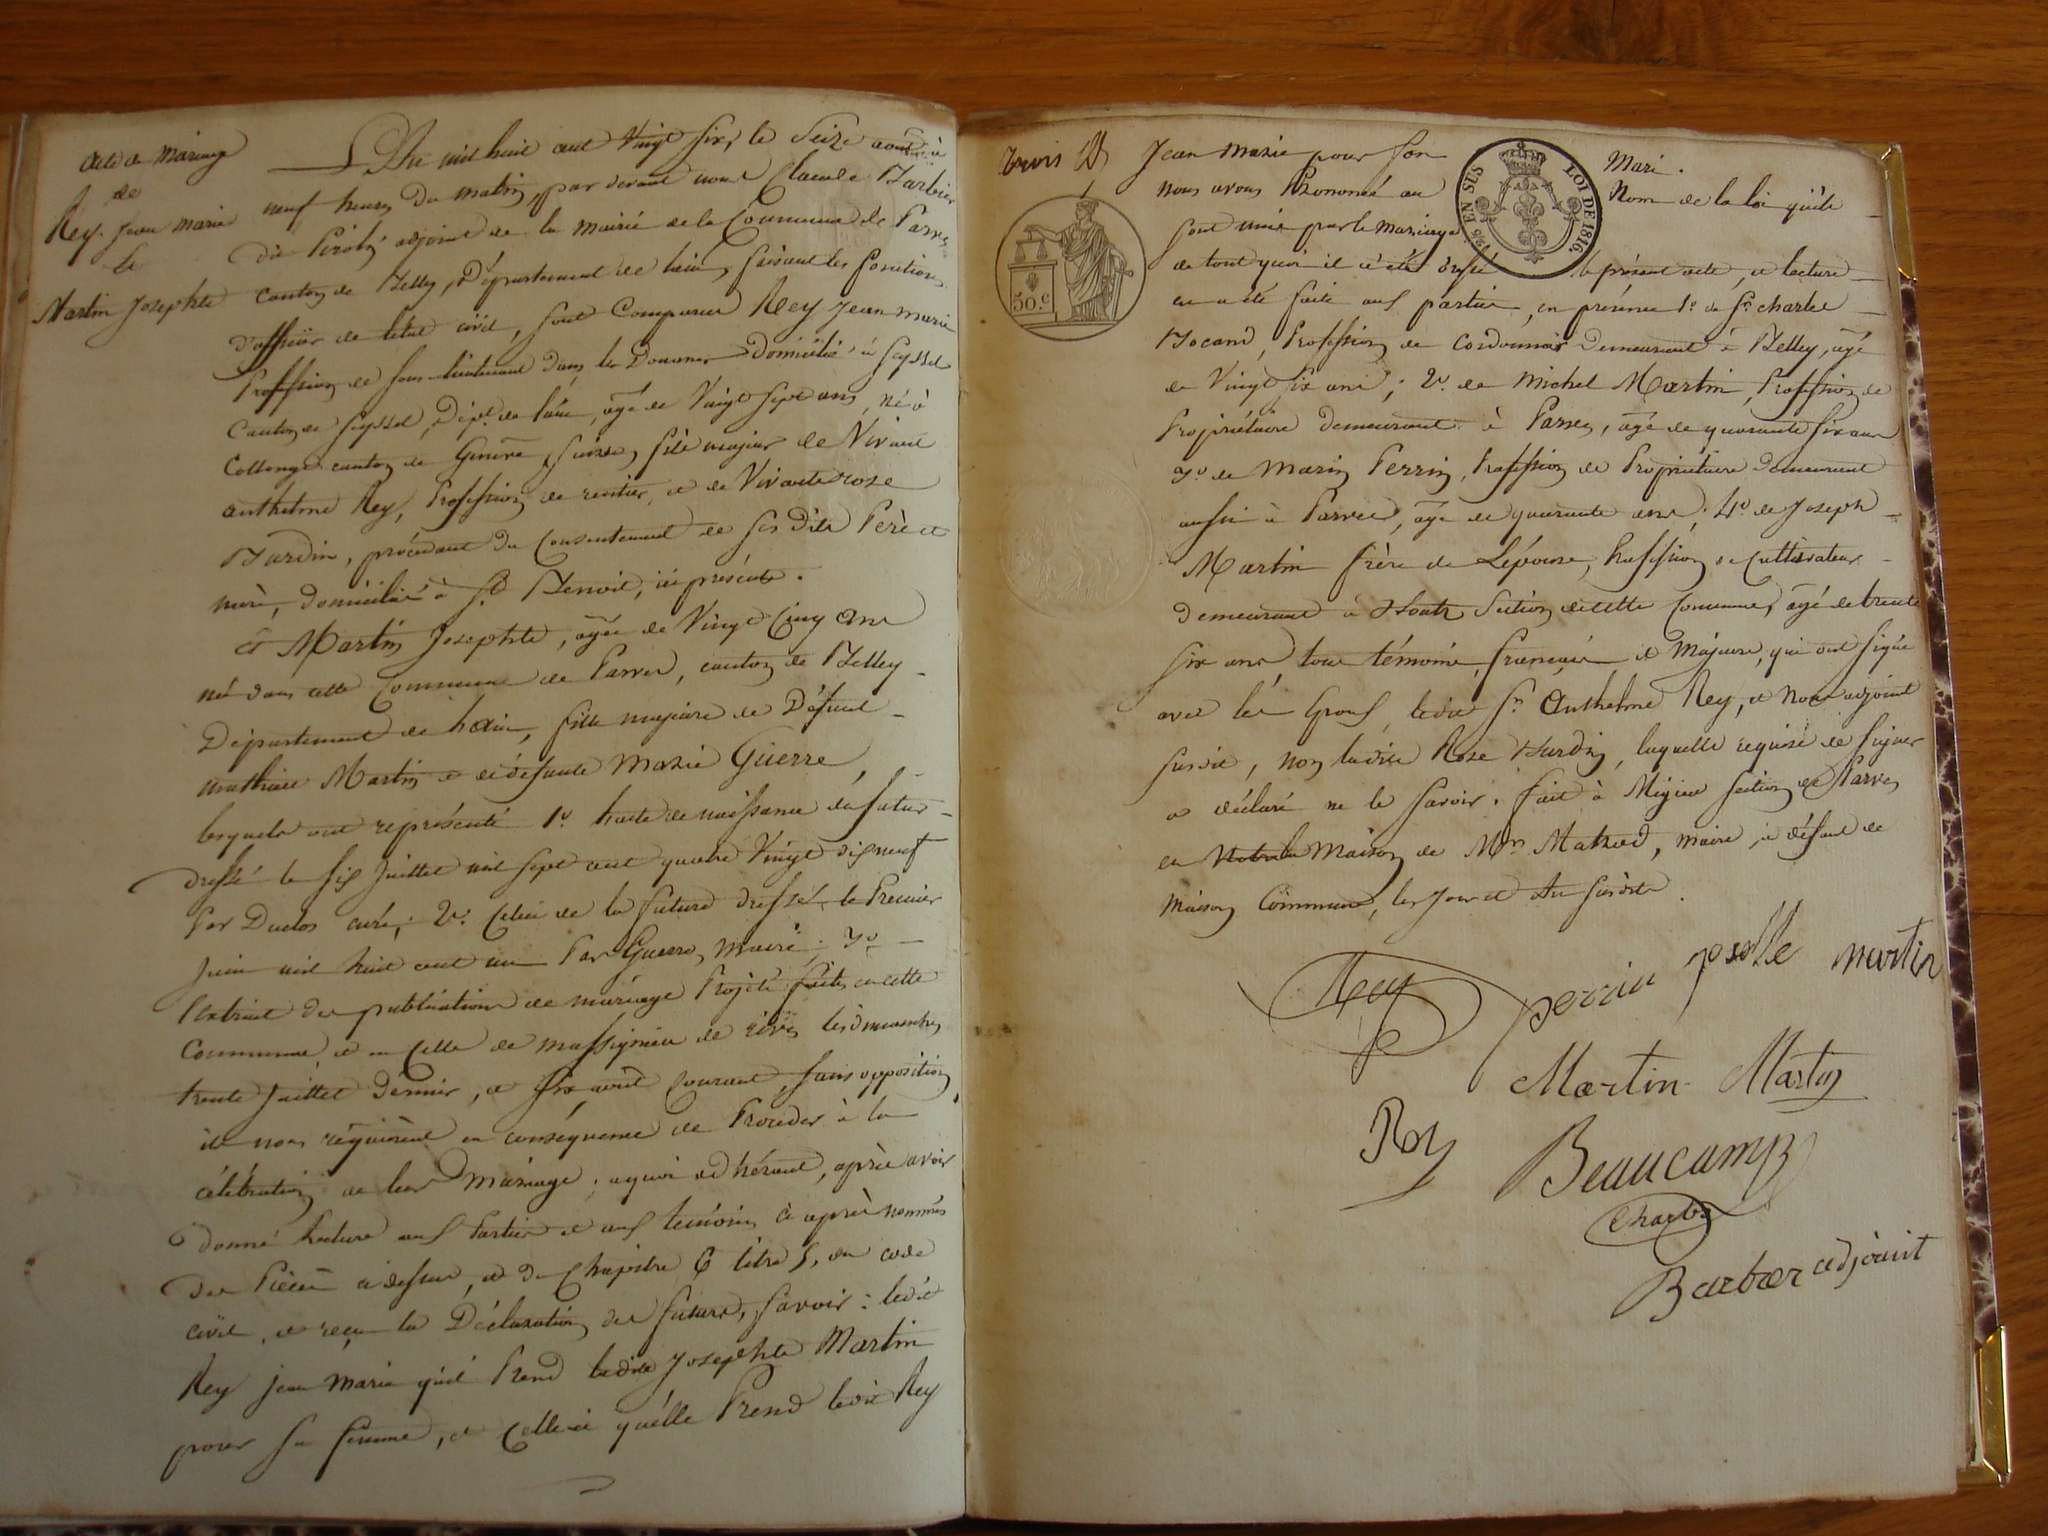 Acte de Mariage
de
Rey Jean Marie
&
Martin Josephte
L'An mil huit cent Vingt six, le Seize août à
neuf heures du matin, par devant nous Claude Barbier
dit Pérols, adjoint de la mairie de la Commune de Parves
canton de Belley, Département de l'ain, faisant les fonctions
d'officier de l'état civil, sont Comparus Rey Jean Marie
Profession de sous-lieutenant dans les Douanes Domicilié à Seyssel
Canton de Seyssel, Dépt. de l'ain, agé de Vingt sept ans, né à
Collonge canton de Genève, Suisse, fils majeur de Vivant
anthelme Rey, Profession de rentier, et de Vivante rose
Bardin, procédant du Consentement de ses dits Père et
mère, domiciliés à St. Benoit, ici présents.
Et Martin Josephte, agée de Vingt Cinq ans
née dans cette Commune de Parves, canton de Belley
Département de l'ain, fille majeure de Défunt
mathieu Martin et de défunte Marie Guerre,
lesquels ont représenté 1o. l'acte de naissance du futur
dressé le six Juillet mil sept cent quatre Vingt dix neuf
Par Duclos curé; 2o. Celui de la future dressé le Premier
Juin mil huit cent un Par Guerre, maire; 3o.
l'extrait des publications de mariage Projeté faites en cette
Commune, et en Celle de massignieu de rives les dimanches
trente Juillet dernier, et six août Courant, sans opposition
ils nous réquièrent en conséquence de Procéder à la
célébration de leur Mariage; aquoi adhérant, après avoir
donné lecture aux Parties et aux témoins ci après nommés
des Pièces ci dessus, et du Chapitre 6 titre 5, du code
civil, et reçu la Déclaration des futurs, savoir: ledit
Rey jean marie qu'il Prend ladite Josephte Martin
pour sa femme, et Celle-ci qu'elle Prend ledit Rey
trois
Jean Marie pour son Mari.
nous avons Prononcé au Nom de la loi qu'ils
sont unis par le Mariage
de tout quoi il a été dressé le présent acte, et lecture
en a été faite aux parties, en présence 1o. de Sr. charles
Bocand, Profession de Cordonnier Demeurant à Belley, agé
de Vingt six ans; 2o. de Michel Martin, Profession de
Propriétaire demeurant à Parves, agé de quarante six ans
3o. de Marin Perrin, Profession de Propriétaire demeurant
aussi à Parves, agé de quarante ans; 4o. de Joseph
Martin frère de L'épouse, Profession de Cultivateur
demeurant à Section de cette Commune, agé de trente
six ans, tous témoins français et Majeurs, qui ont signé
avec les Epoux, ledit Sr. Anthelme Rey, et Nous adjoint
susdit, non ladite Rose Bardin, laquelle requise de signer
a déclaré ne le savoir. fait à Migieu section de Parves
en la Maison de Mr. Mathed, maire, à défaut de
Maison Commune, les Jour et An susdits.
EN SUS
LOI DE 1816
50.c
Rey perrin martin
Martin Martin
Rey Beaucamp
Charles
Barbier adjoint